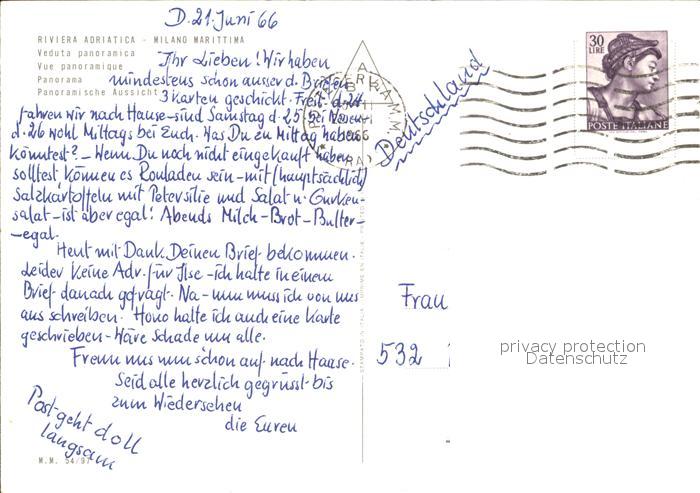 D. 21. Juni 66
RIVIERA ADRIATICA - MILANO MARITTIMA
Veduta panoramica
Vue panoramique
Panorama
Panoramische Aussicht
Ihr Lieben! Wir haben
mindestens schon ausser d. Briefen
3 Karten geschickt. Freit. d. 24.
fahren wir nach Hause - sind Samstag d. 25 bei
d. 26 wohl Mittags bei Euch. Was Du zu Mittag haben
könntest? - Wenn Du noch nicht eingekauft haben
solltest können es Rouladen sein - mit (hauptsächlich)
Salzkartoffeln mit Petersilie und Salat u. Gurken-
salat - ist aber egal! Abends Milch - Brot - Butter -
- egal.
Heut mit Dank Deinen Brief bekommen.
Leider keine Adr. für Ilse - ich hatte in einem
Brief danach gefragt. Na - nun muss ich von uns
aus schreiben. Hono hatte ich auch eine Karte
geschrieben - Wäre schade um alle.
Freun uns nun schon auf nach Hause.
Seid alle herzlich gegrüsst bis
zum Wiedersehen
die Euren
Post geht doll
langsam
M.M. 54/9
Deutschland
30
LIRE
POSTE ITALIANE
Frau
532
privacy protection
Datenschutz